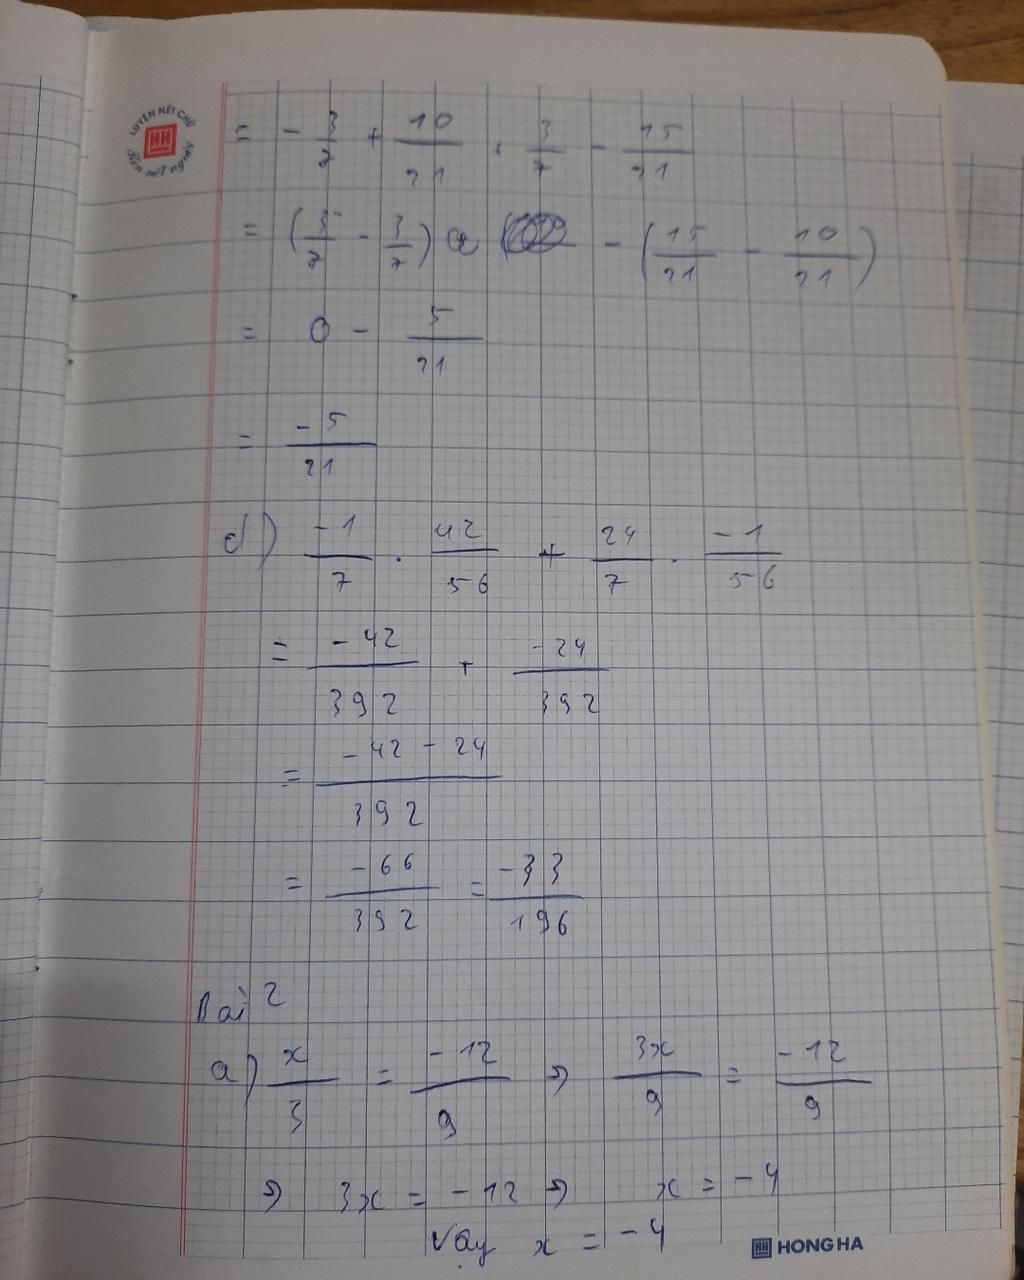 LUYỆN NÉT CHỮ
HH
Rèn nết người
= - 3/7 + 10/21 . 3/7 - 15/21
= (3/7 - 3/7) - (15/21 - 10/21)
= 0 - 5/21
= -5/21
d) -1/7 . 42/56 + 24/7 . -1/56
= -42/392 + -24/392
= -42-24/392
= -66/392 = -33/196
Bài 2
a) x/3 = -12/9 => 3x/9 = -12/9
=> 3x = -12 => x = -4
Vậy x = -4
HH HONG HA